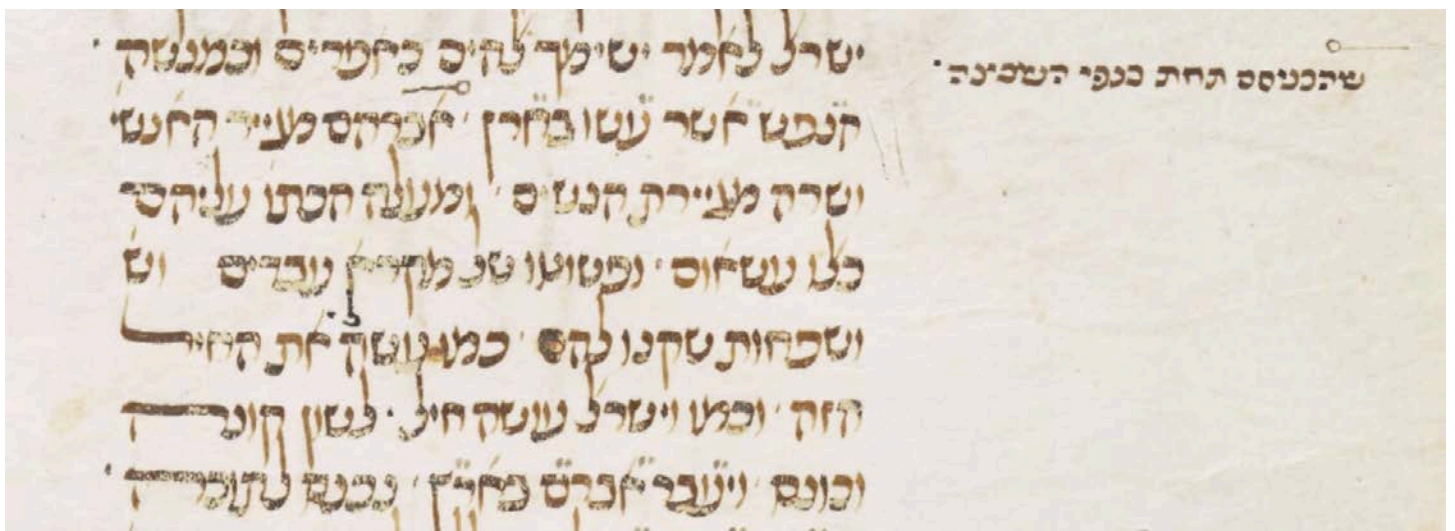 ישרﭏ לאמר ישימך ﭏהים כאפרים וכמנשה
שהכניסם תחת כנפי השכינה
הנפש אשר עשו בחרן אברהם מגייר האנשי
ושרה מגיירת הנשים ומעלה הכתו עליהם
כﭏו עשאום ופשוטו של מקרא עבדים וש
ושפחות שקנו להם כמו עשה את החיל
הזה וכמו וישרﭏ עושה חיל לשון קונה
וכונס ויעבר אברם בארץ נכנס לתוכה